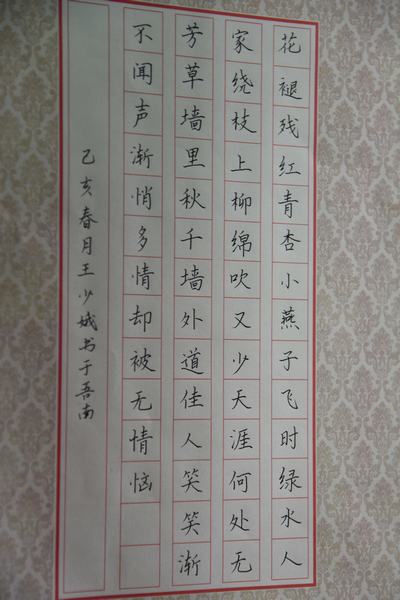 花褪残红青杏小燕子飞时绿水人
家绕枝上柳绵吹又少天涯何处无
芳草墙里秋千墙外道佳人笑笑渐
不闻声渐悄多情却被无情恼
己亥春月王少娥书于吾南